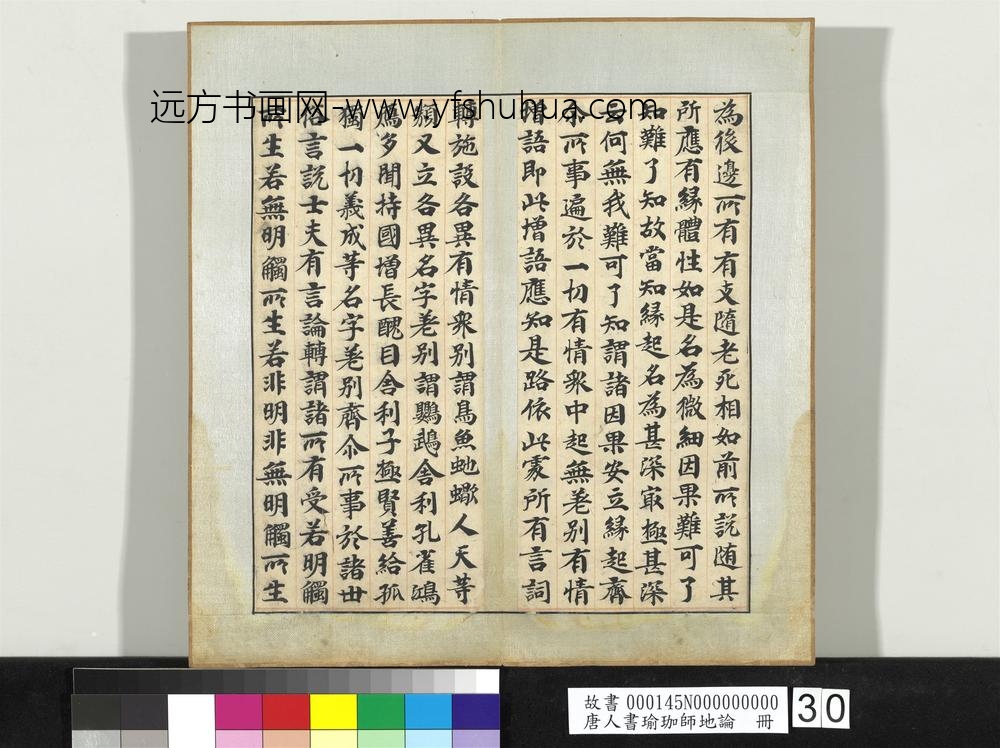 远方书画网-www.yfshuhua.com
為後邊所有有支隨老死相如前所説随其
所應有緣體性如是名為微細因果難可了
知難了知故當知緣起名為甚深㝡極甚深
云何無我難可了知謂諸因果安立緣起齊
尒所事遍於一切有情衆中起無差別有情
增語即此增語應知是路依此處所有言詞
轉施設各異有情衆別謂鳥魚虵蠍人天等
類又立各異名字差別謂鸚鵡舍利孔雀鴻
鴈多聞持國增長醜目舍利子極賢善給孤
獨一切義成等名字差別齊尒所事於諸世
俗言説士夫有言論轉謂諸所有受若明觸
所生若無明觸所生若非明非無明觸所生
故書 000145N000000000
唐人書瑜珈師地論 冊
30